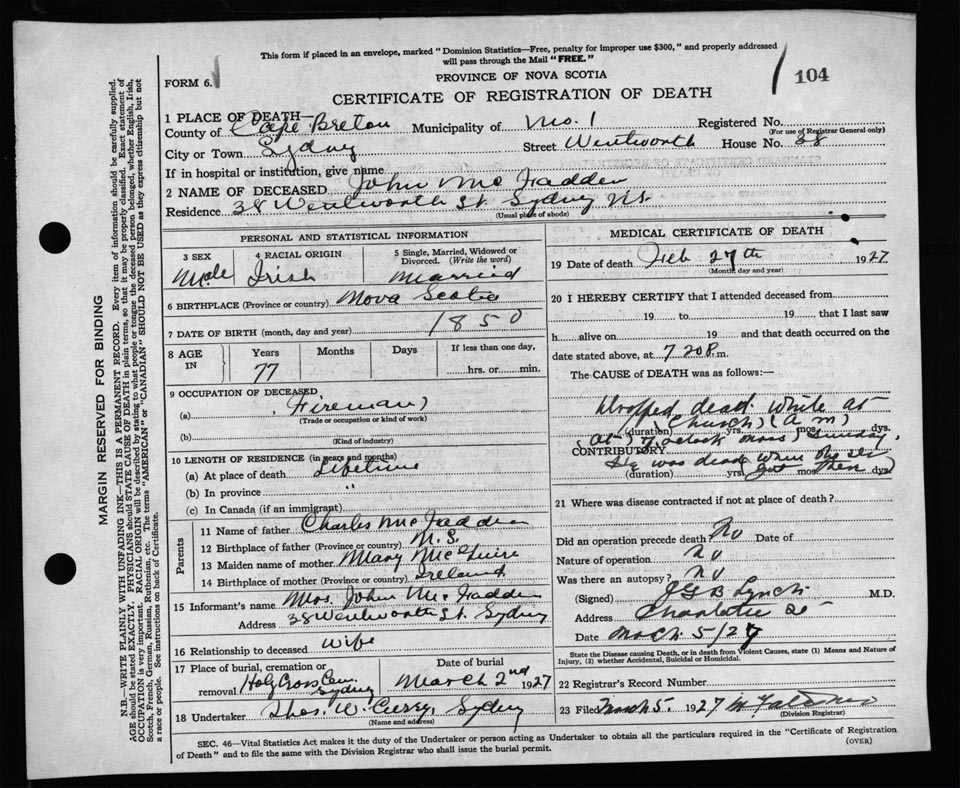 This form if placed in an envelope, marked "Dominion Statistics—Free, penalty for improper use $300," and properly addressed
will pass through the Mail "FREE."
PROVINCE OF NOVA SCOTIA
FORM 6.
104
CERTIFICATE OF REGISTRATION OF DEATH
1 PLACE OF DEATH—
County of Cape Breton Municipality of No. 1 Registered No.
(For use of Registrar General only)
City or Town Sydney Street Wentworth House No. 38
If in hospital or institution, give name
2 NAME OF DECEASED John McFadden
Residence 38 Wentworth St. Sydney N.S.
(Usual place of abode)
PERSONAL AND STATISTICAL INFORMATION
3 SEX 4 RACIAL ORIGIN 5 Single, Married, Widowed or Divorced. (Write the word)
Male Irish Married
6 BIRTHPLACE (Province or country) Nova Scotia
7 DATE OF BIRTH (month, day and year) 1850
8 AGE IN Years Months Days If less than one day,
77 hrs. or min.
9 OCCUPATION OF DECEASED
(a) Fireman
(Trade or occupation or kind of work)
(b)
(Kind of industry)
10 LENGTH OF RESIDENCE (in years and months)
(a) At place of death Lifetime
(b) In province "
(c) In Canada (if an immigrant)
Parents
11 Name of father Charles McFadden
12 Birthplace of father (Province or country) N.S.
13 Maiden name of mother Mary McGuire
14 Birthplace of mother (Province or country) Ireland
15 Informant's name Mrs. John McFadden
Address 38 Wentworth St. Sydney
16 Relationship to deceased wife
17 Place of burial, cremation or removal Holy Cross Cem. Sydney
Date of burial March 2nd 1927
18 Undertaker Thos. W. Curry, Sydney
(Name and address)
MEDICAL CERTIFICATE OF DEATH
19 Date of death Feb 27th 1927
(Month, day and year)
20 I HEREBY CERTIFY that I attended deceased from
19 to 19, that I last saw
h alive on 19 and that death occurred on the
date stated above, at 7 20 P.m.
The CAUSE of DEATH was as follows:—
Dropped dead while at
Church (a.m)
(duration) yrs. mos. dys.
at 7 oclock mass Sunday.
CONTRIBUTORY
He was dead when
(duration) yrs. mos. dys.
got then
21 Where was disease contracted if not at place of death?
Did an operation precede death? No Date of
Nature of operation no
Was there an autopsy? no
(Signed) Lynch M.D.
Address Charlotte St
Date Mach. 5/27
State the Disease causing Death, or in death from Violent Causes, state (1) Means and Nature of
Injury, (2) whether Accidental, Suicidal or Homicidal.
22 Registrar's Record Number
23 Filed March 5. 1927
(Division Registrar)
SEC. 46—Vital Statistics Act makes it the duty of the Undertaker or person acting as Undertaker to obtain all the particulars required in the "Certificate of Registration
of Death" and to file the same with the Division Registrar who shall issue the burial permit.
(OVER)
MARGIN RESERVED FOR BINDING
N.B.—WRITE PLAINLY WITH UNFADING INK—THIS IS A PERMANENT RECORD. Every item of information should be carefully supplied.
AGE should be stated EXACTLY. PHYSICIANS should STATE CAUSE OF DEATH in plain terms, so that it may be properly classified. Exact statement of
OCCUPATION is very important. RACIAL ORIGIN will be described by stating to what people or tongue the deceased person belonged, whether English, Irish,
Scotch, French, German, Russian, Ruthenian, etc. The terms "AMERICAN" or "CANADIAN" SHOULD NOT BE USED as they express citizenship but not
a race or people. See instructions on back of Certificate.